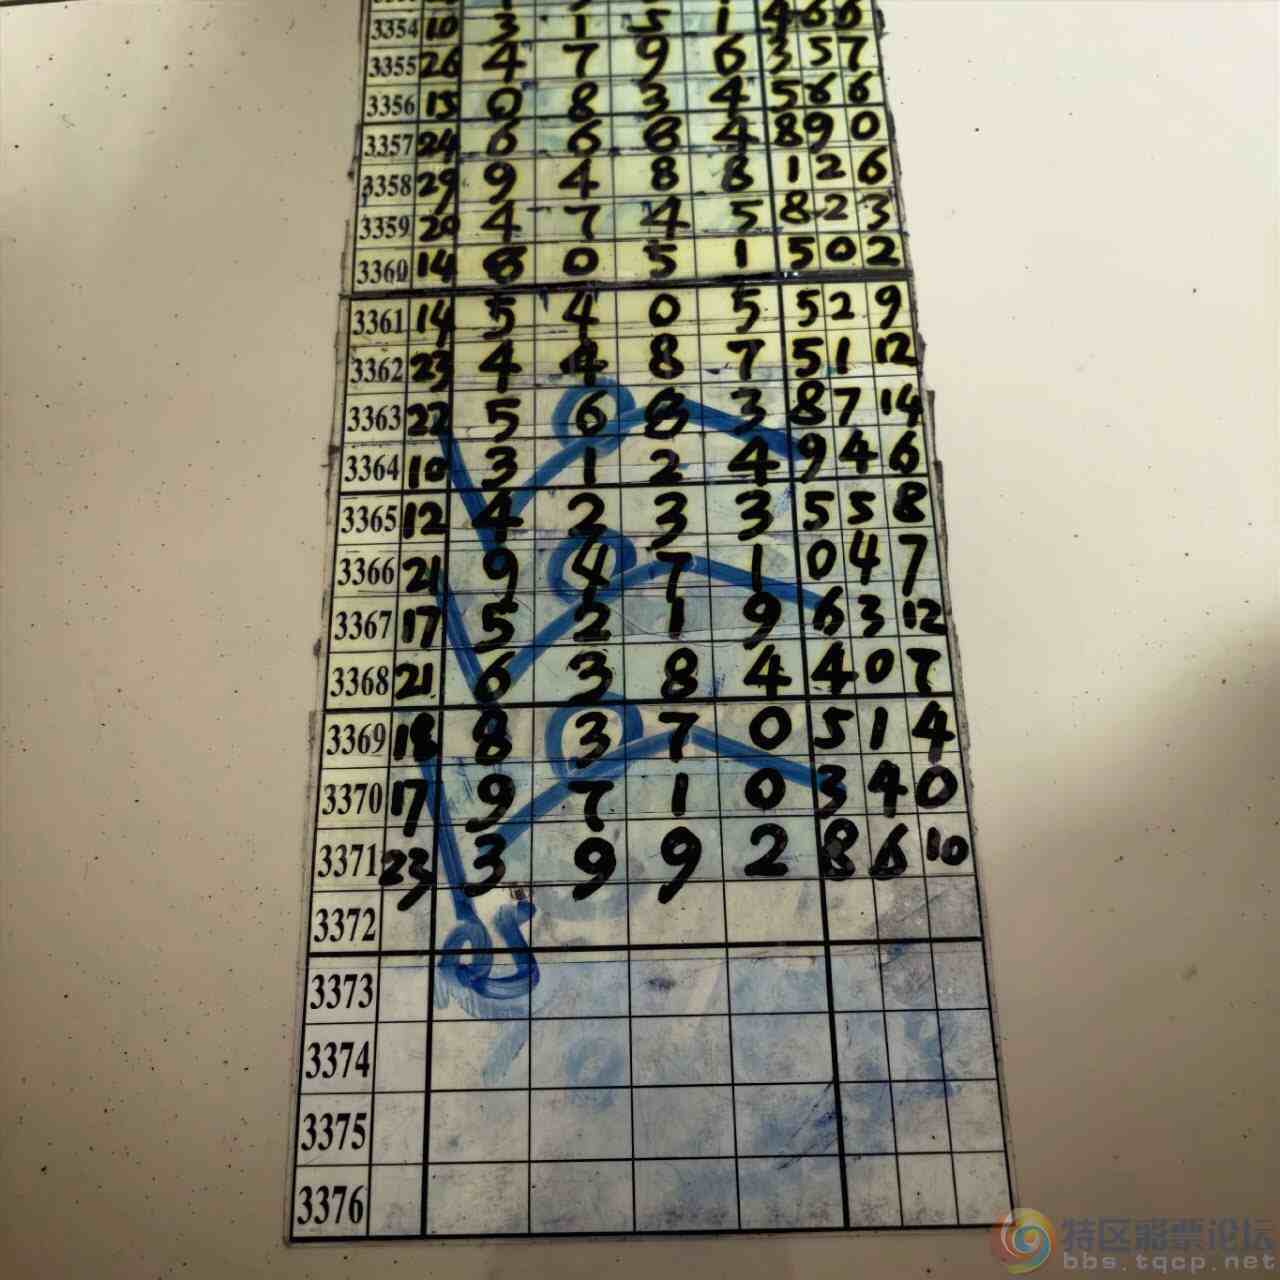 3354 10 3 1 5 1 4 6 6
3355 26 4 7 9 6 3 5 7
3356 15 0 8 3 4 5 6 6
3357 24 6 6 8 4 8 9 0
3358 29 9 4 8 8 1 2 6
3359 20 4 7 4 5 8 2 3
3360 14 8 0 5 1 5 0 2
3361 14 5 4 0 5 5 2 9
3362 23 4 4 8 7 5 1 12
3363 22 5 6 8 3 8 7 14
3364 10 3 1 2 4 9 4 6
3365 12 4 2 3 3 5 5 8
3366 21 9 4 7 1 0 4 7
3367 17 5 2 1 9 6 3 12
3368 21 6 3 8 4 4 0 7
3369 18 8 3 7 0 5 1 4
3370 17 9 7 1 0 3 4 0
3371 23 3 9 9 2 8 6 10
3372
05
3373
3374
3375
3376
特区彩票论坛
bbs.tqcp.net